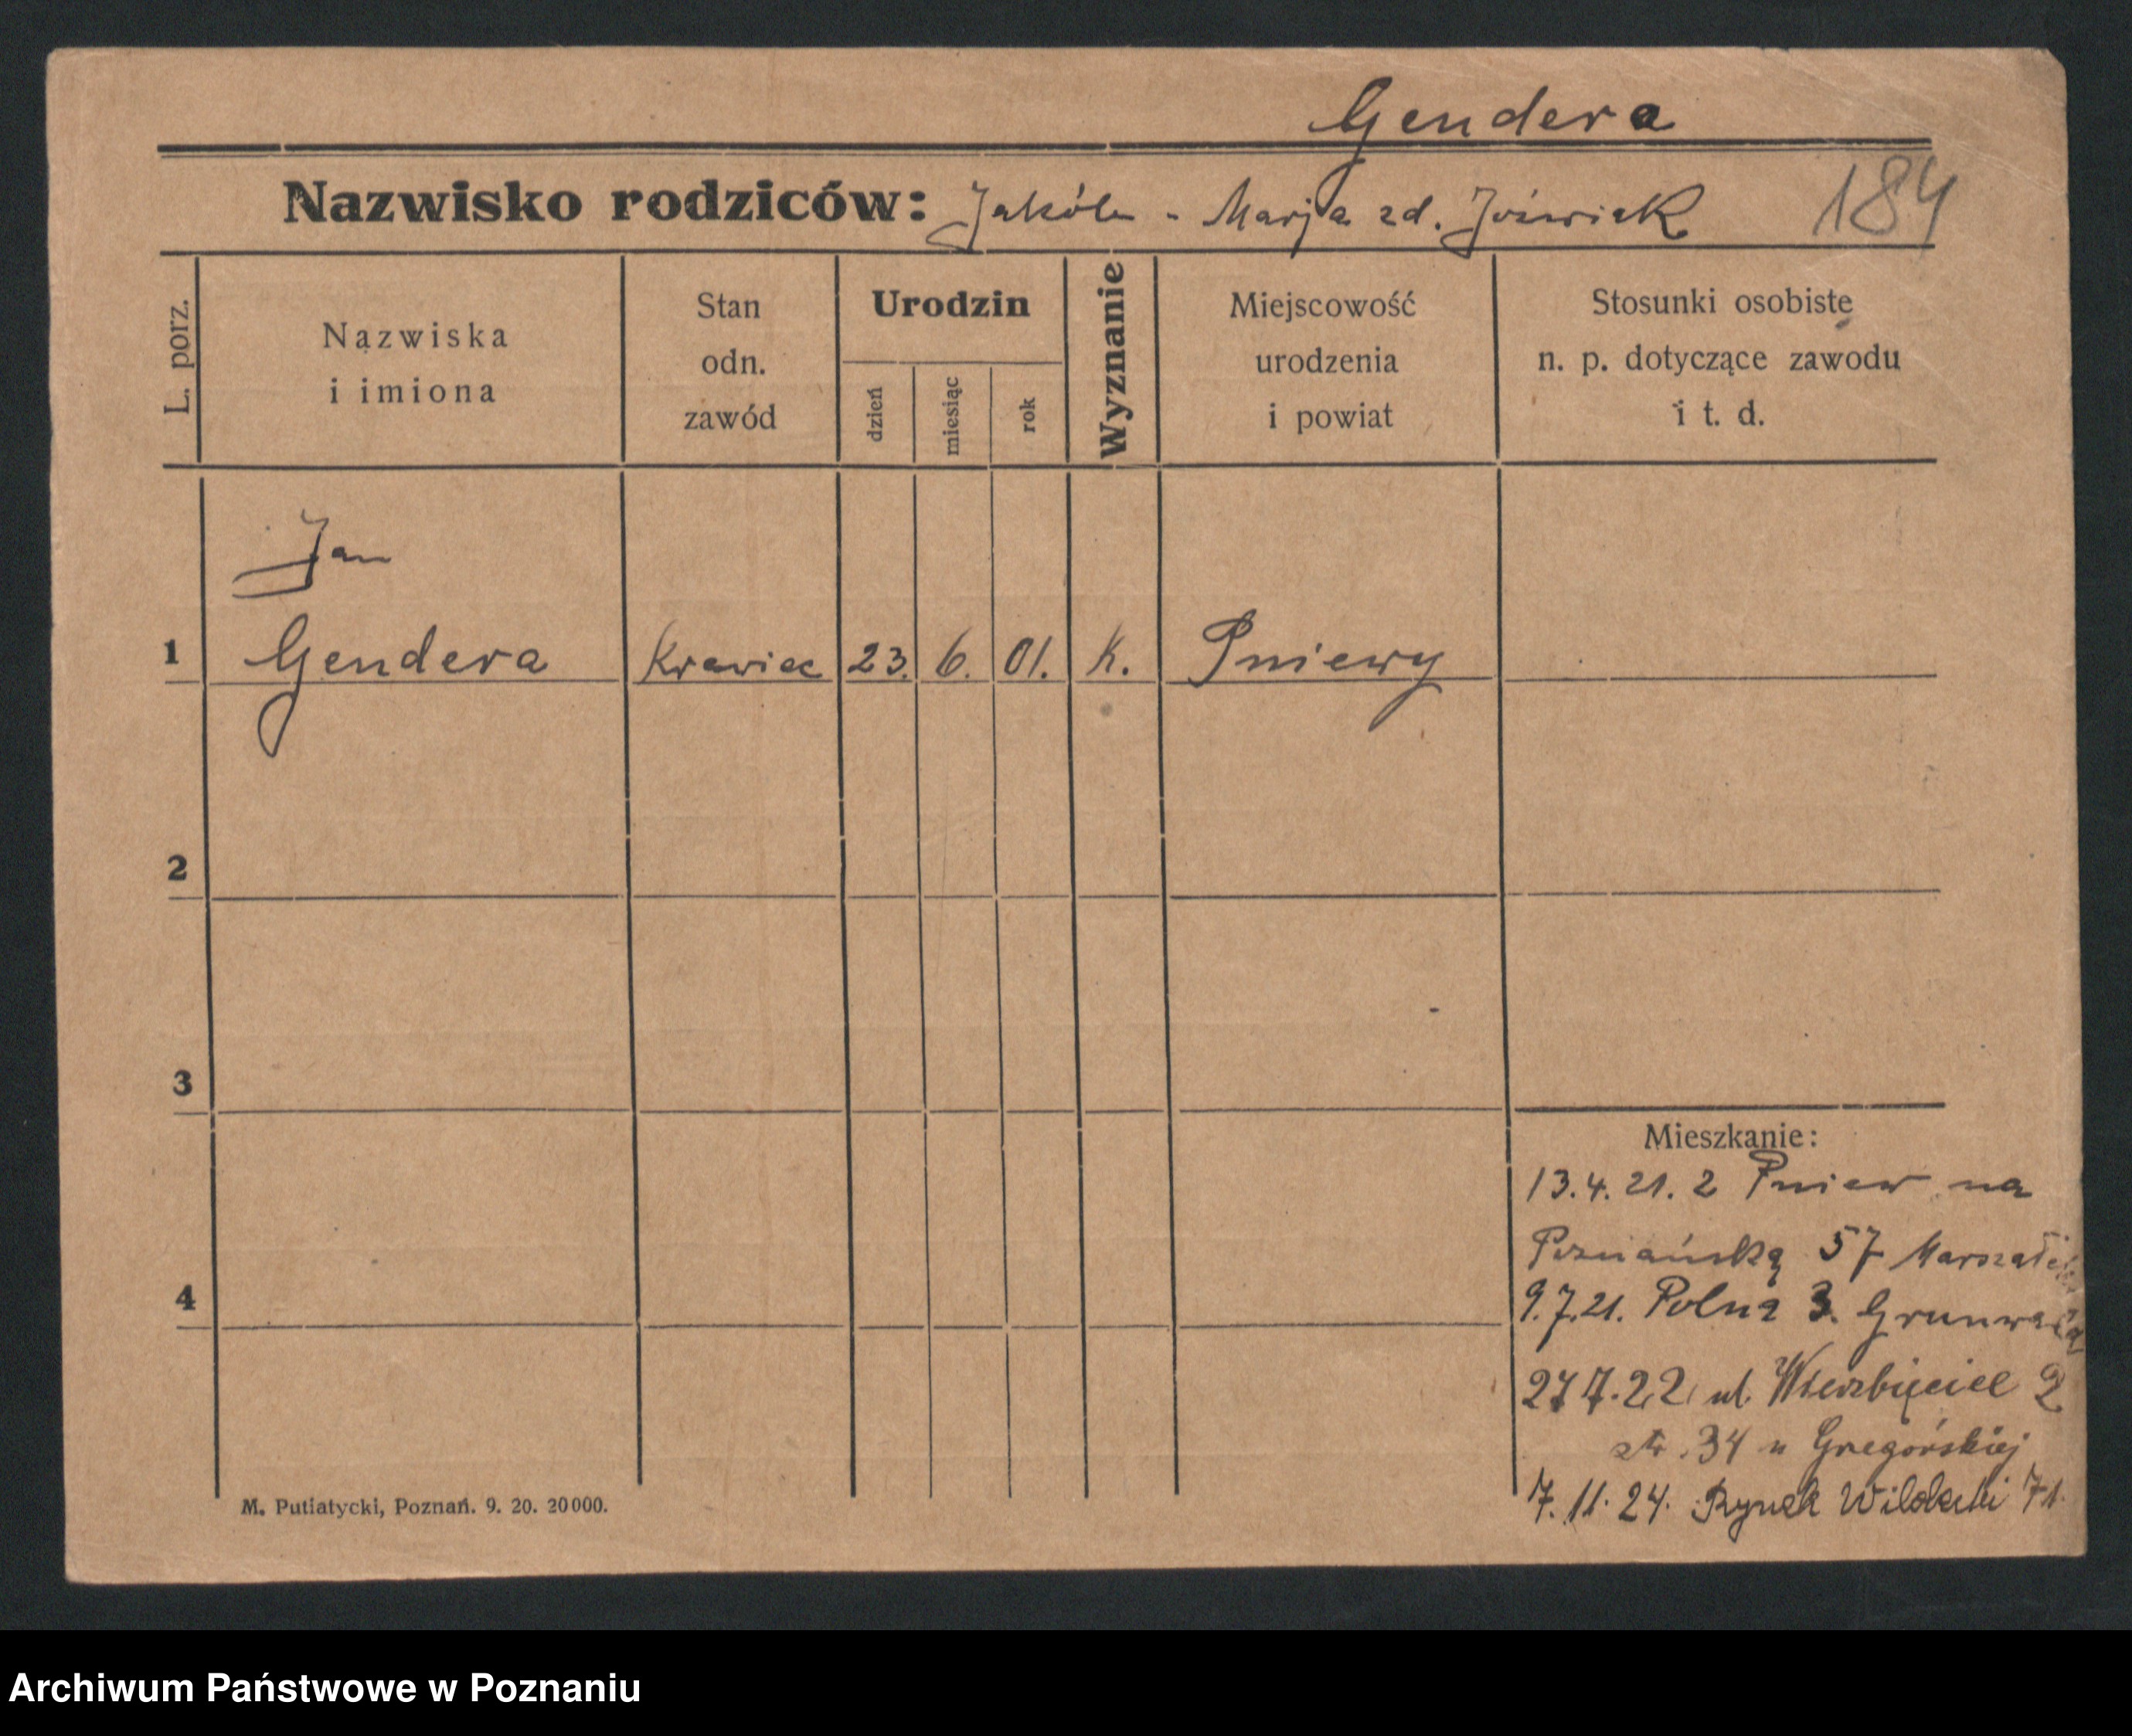 Gendera
Nazwisko rodziców: Jakób - Marja zd. Jóźwiak 184
L. porz.
Nazwiska
i imiona
Stan
odn.
zawód
Urodzin
dzień
miesiąc
rok
Wyznanie
Miejscowość
urodzenia
i powiat
Stosunki osobiste
n. p. dotyczące zawodu
i t. d.
Jan
1 Gendera Krawiec 23. 6. 01. K. Pniewy
2
3
4
Mieszkanie:
13.4.21. z Pniew na
Poznańską 57
9.7.21. Polna 3.
27 7.22 ul. Wierzbięcice
34 u Gregórskiej
7.11.24. Rynek Wildecki 71.
M. Putiatycki, Poznań. 9. 20. 20000.
Archiwum Państwowe w Poznaniu